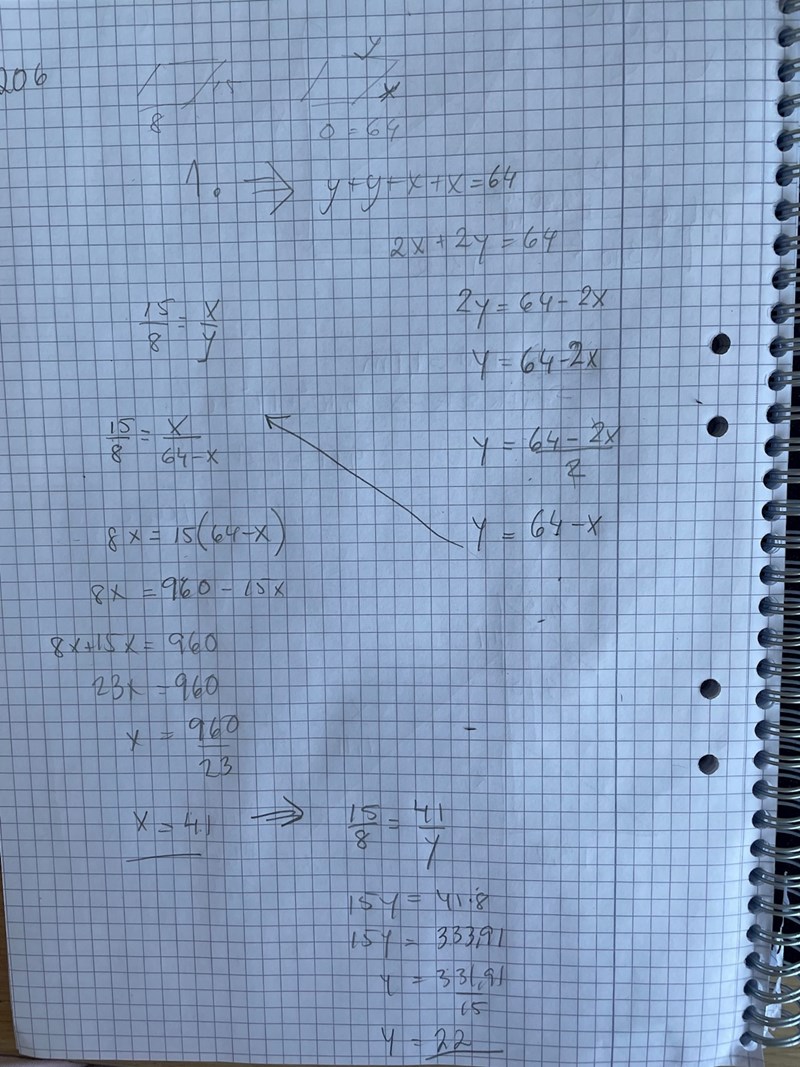 206
15
8
y
x
O = 64
1. ⇒ y+y+x+x=64
2x+2y=64
2y=64-2x
y=64-2x
y = 64-2x / 2
y = 64-x
15/8 = x/y
15/8 = x/64-x
8x = 15(64-x)
8x = 960-15x
8x+15x = 960
23x = 960
x = 960/23
x = 41 ⇒ 15/8 = 41/y
15y = 41·8
15y = 333,91
y = 331,91/15
y = 22